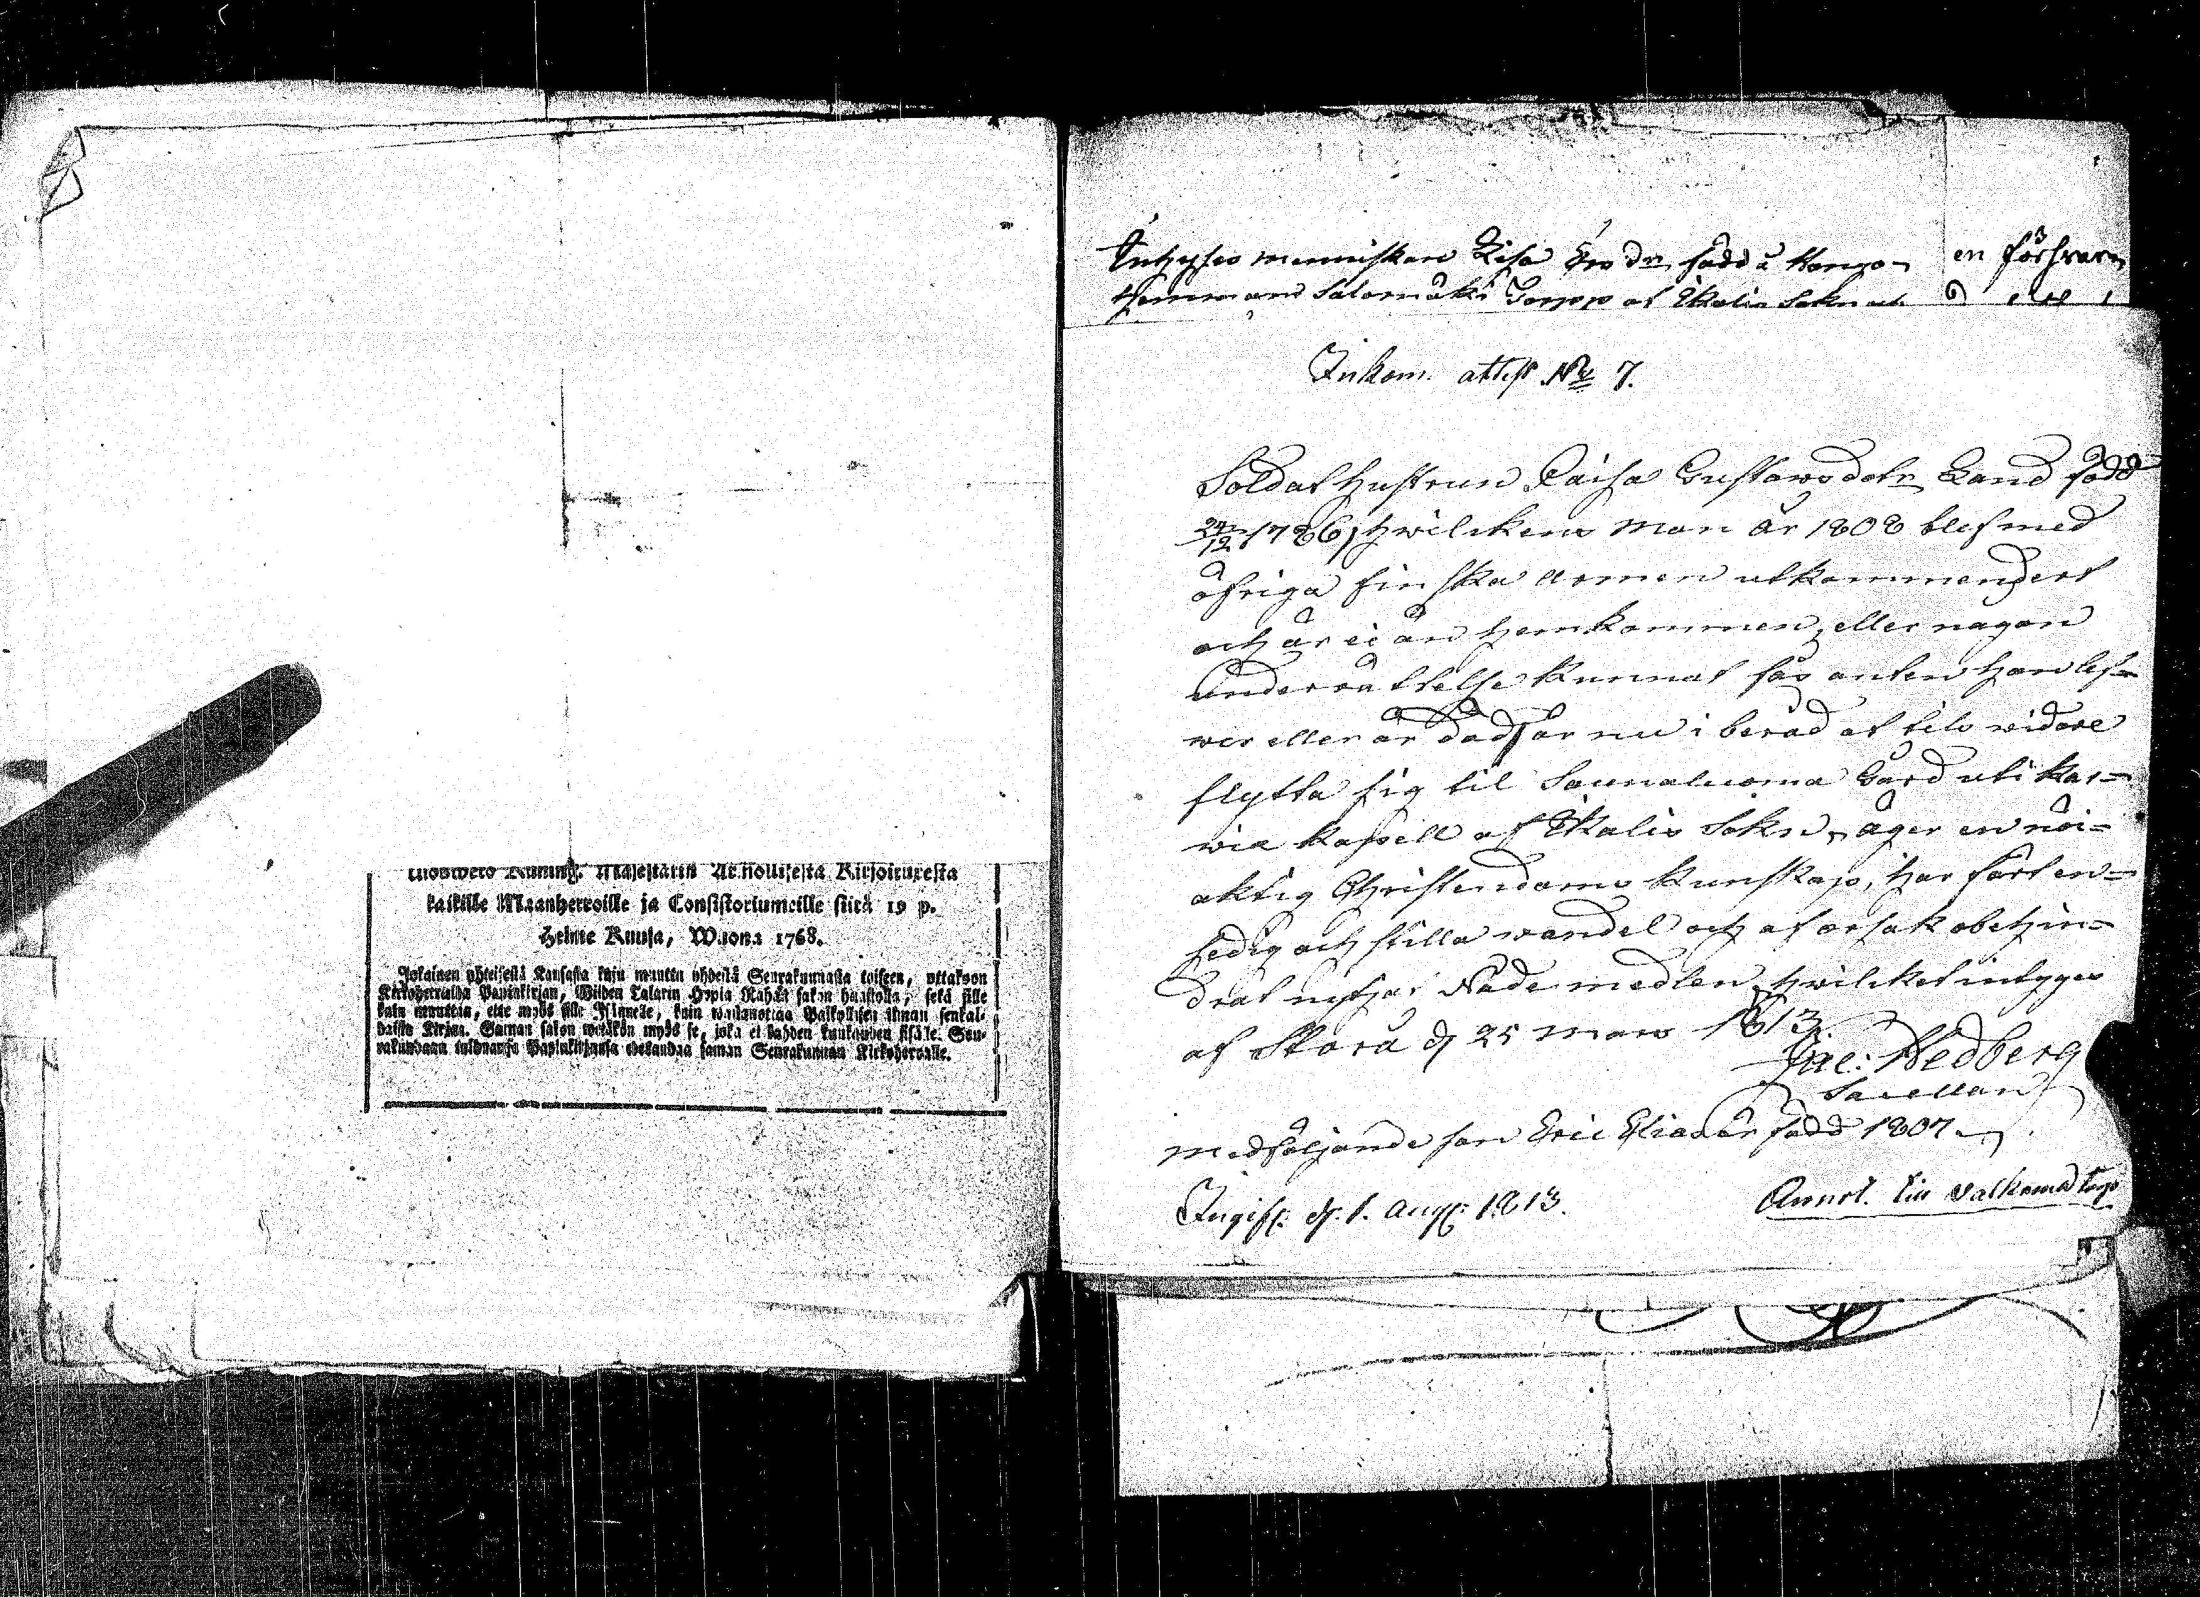 Kuning. Majestätin Armollisesta Kirjoituxesta
kaikille Maanherroille ja Consistoriumeille siitä 19 p.
Heinä Kuusa, Wuonna 1768.
Jokainen yhteisestä Kansasta kuin muutta yhdestä Seurakunnasta toiseen, ottakoon
Kirkoherralda Papinkirjan, Wiiden Talarin Hopia Rahan sakon haastolla, sekä sille
kuin muuttaa, ette myös sille Isännelle, kuin wastanottaa Palkollisen ilman senkal-
daista Kirjaa. Saman sakon wetäkön myös se, joka ei kahden kuukauden sisälle, Seu-
rakundaan tulduansa Papinkirjaansa edesandaa saman Seurakunnan Kirkoherralle.
Inhyses menniskan Lisa dr född å Kongo-
hemmans Salomäki Torpp af Ikalis Sokn
en försvarn
Inkom. attest No 7.
Soldat hustrun Caisa Gustavsdotr Land född
24/12 1786, hwilkens man år 1808 blef med
öfriga finska armen utkommendert
och är ei än hemkommen, eller nagon
underrättelse kunnat fås anten han lef-
wer eller är död, är nu i beråd at tils widare
flytta sig til Saunaluoma Gård uti Kar-
wia Kapell af Ikalis Sokn, äger en nöi-
aktig Christendoms kunskap, har fört en
sedig och stilla wandel och af orsak obehin-
drat nythiat Nåde medlen, hwilket intygas
af Storå d 25 Mars 1813.
Jac: Hedberg
Sacellan
Medföljande son Eric Elias är född 1807
Ingifs. d. 1. Aug: 1813.
Annot. till Valkama torp